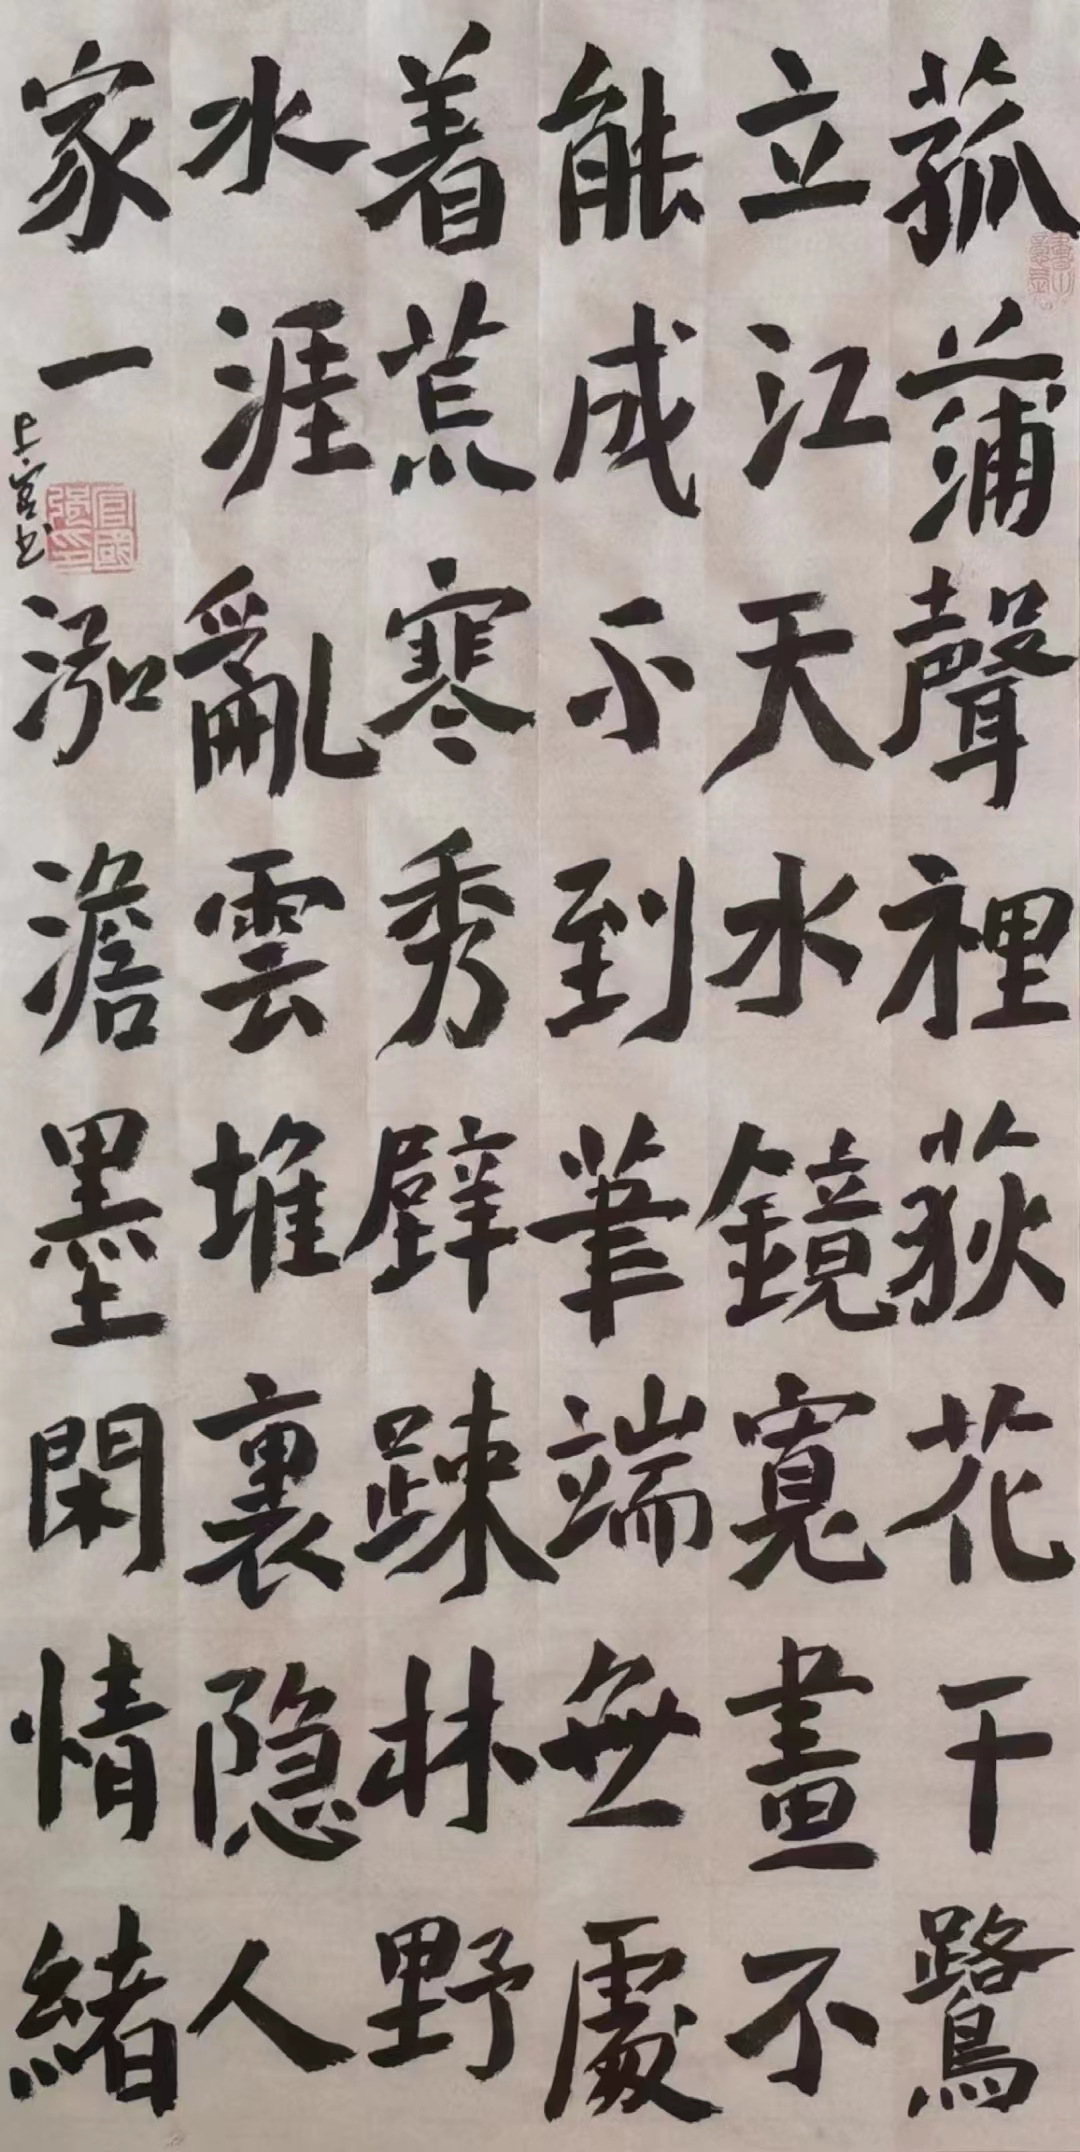 菰蒲聲裡荻花干鷺
立江天水鏡寬畫不
能成不到筆端無處
着荒寒秀辟疎林野
水涯亂雲堆裏隐人
家一泓澹墨閑情緒
上官书
官國强印